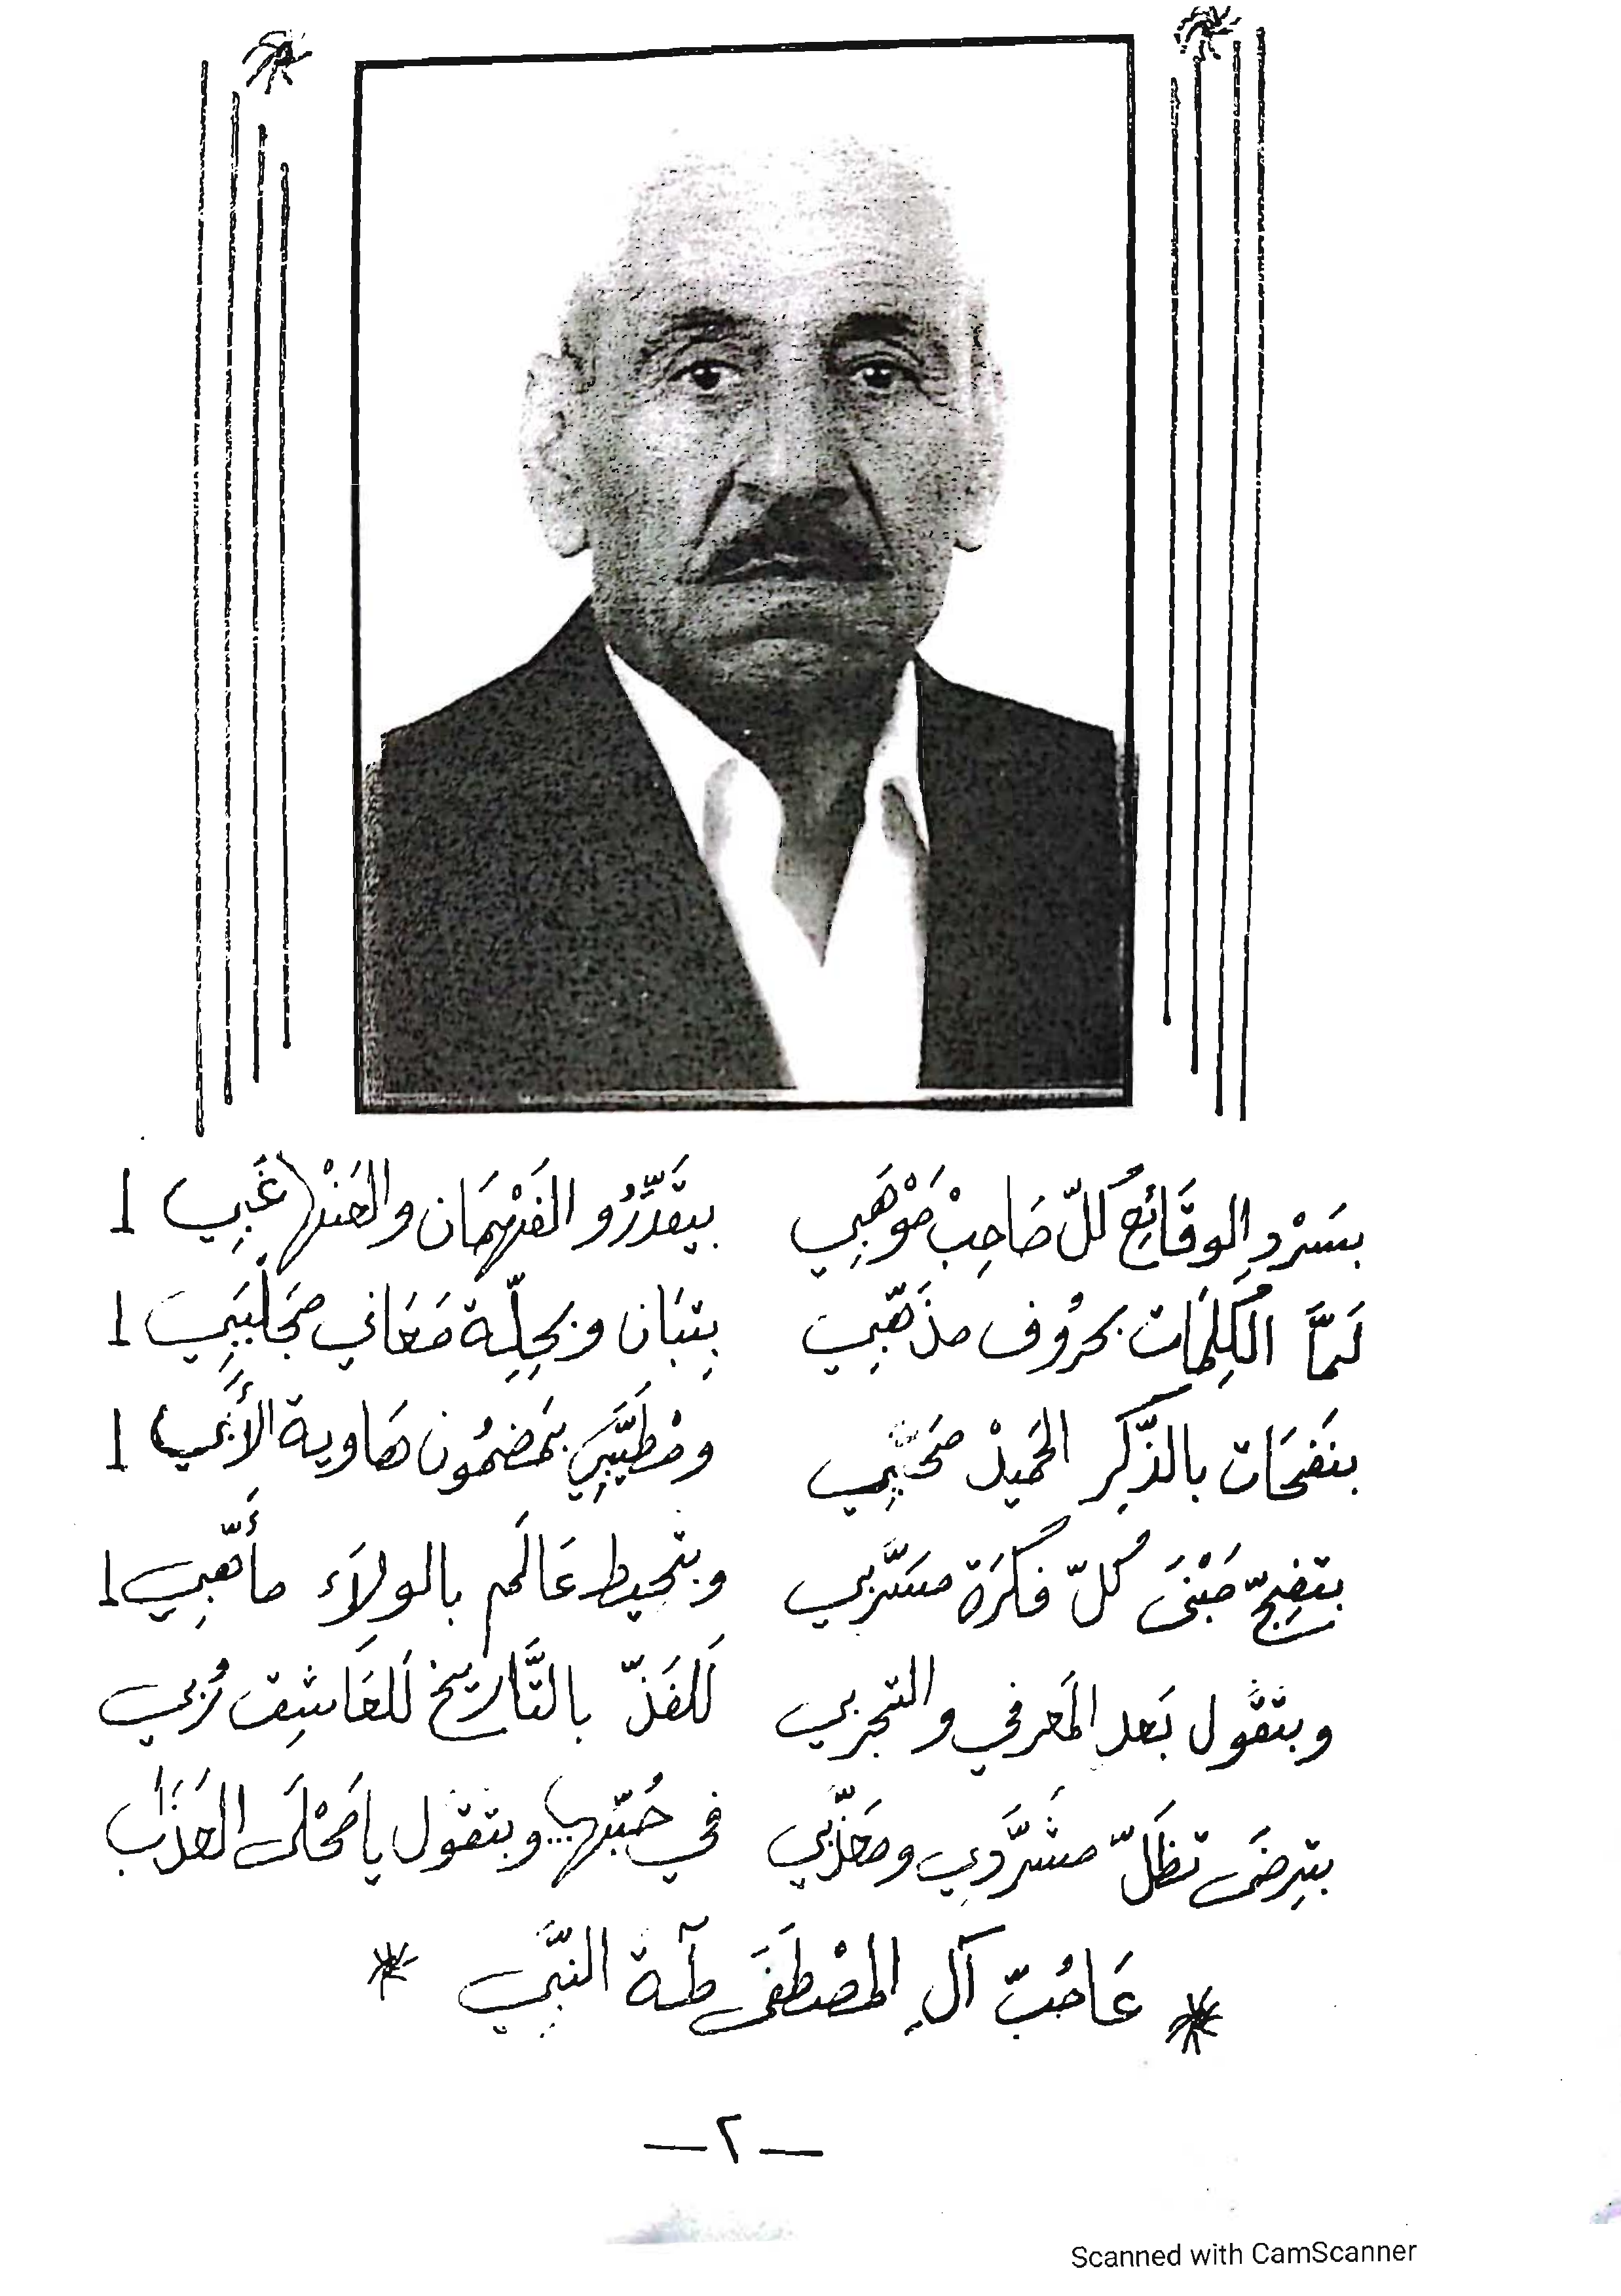 بسَرْدِ الوقَائِعْ كُلّ صَاحِبْ مَوْهَبِي بيقَدِّرُو الفَهْمَان والعَنْها غَبِي !
لَمَّا الكِلِمَات بحرُوف مذَهّبِي بِتبَان وبحِلِّة مَعَاني مجَلْبَبِي !
بنَفحَات بالذِّكِر الحَمِيدْ محَبَّبِي ومْطَيَّبِي بمَضمُون هَاوية الأَبِي !
بتضِجّ مَبْنَى كُلّ فكرَة مسَرَّبِي وبتحيط عَالَم بالولاَء مأَهّبِي !
وبتقُول بَعد المَعرفي والتجربي لَلفَذّ بالتَّاريخ لَلعَاشِق رُبي
بتِرضَى تظَلّ مشَرَّدِي ومعَذّبي في حُبّها... وبتقول يا مَحْلَى العَذَاب
* عَاحُبّ آلِ المصْطَفَى طَهَ النبَّي *
— ٢ —
Scanned with CamScanner